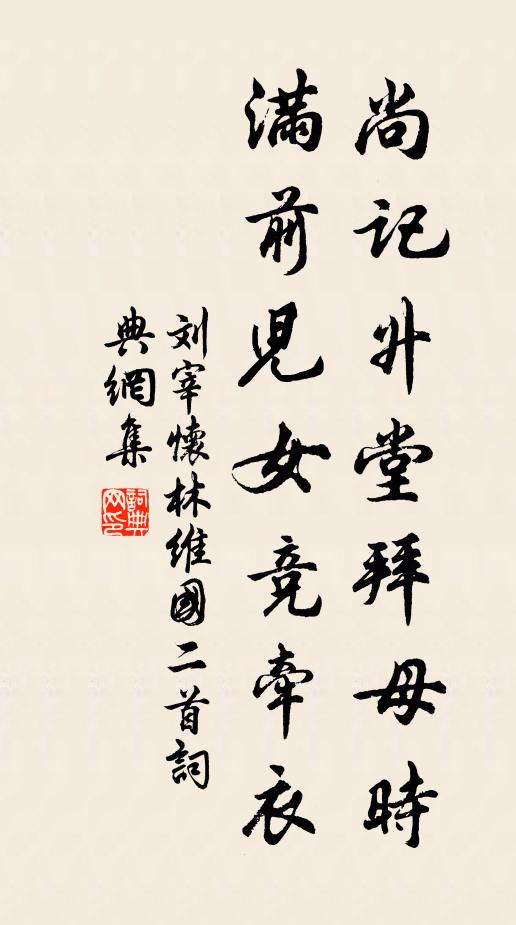 尚记升堂拜母时
满前児女竞牵衣
刘宰懷林维國二首詞
典網集
詞典网印